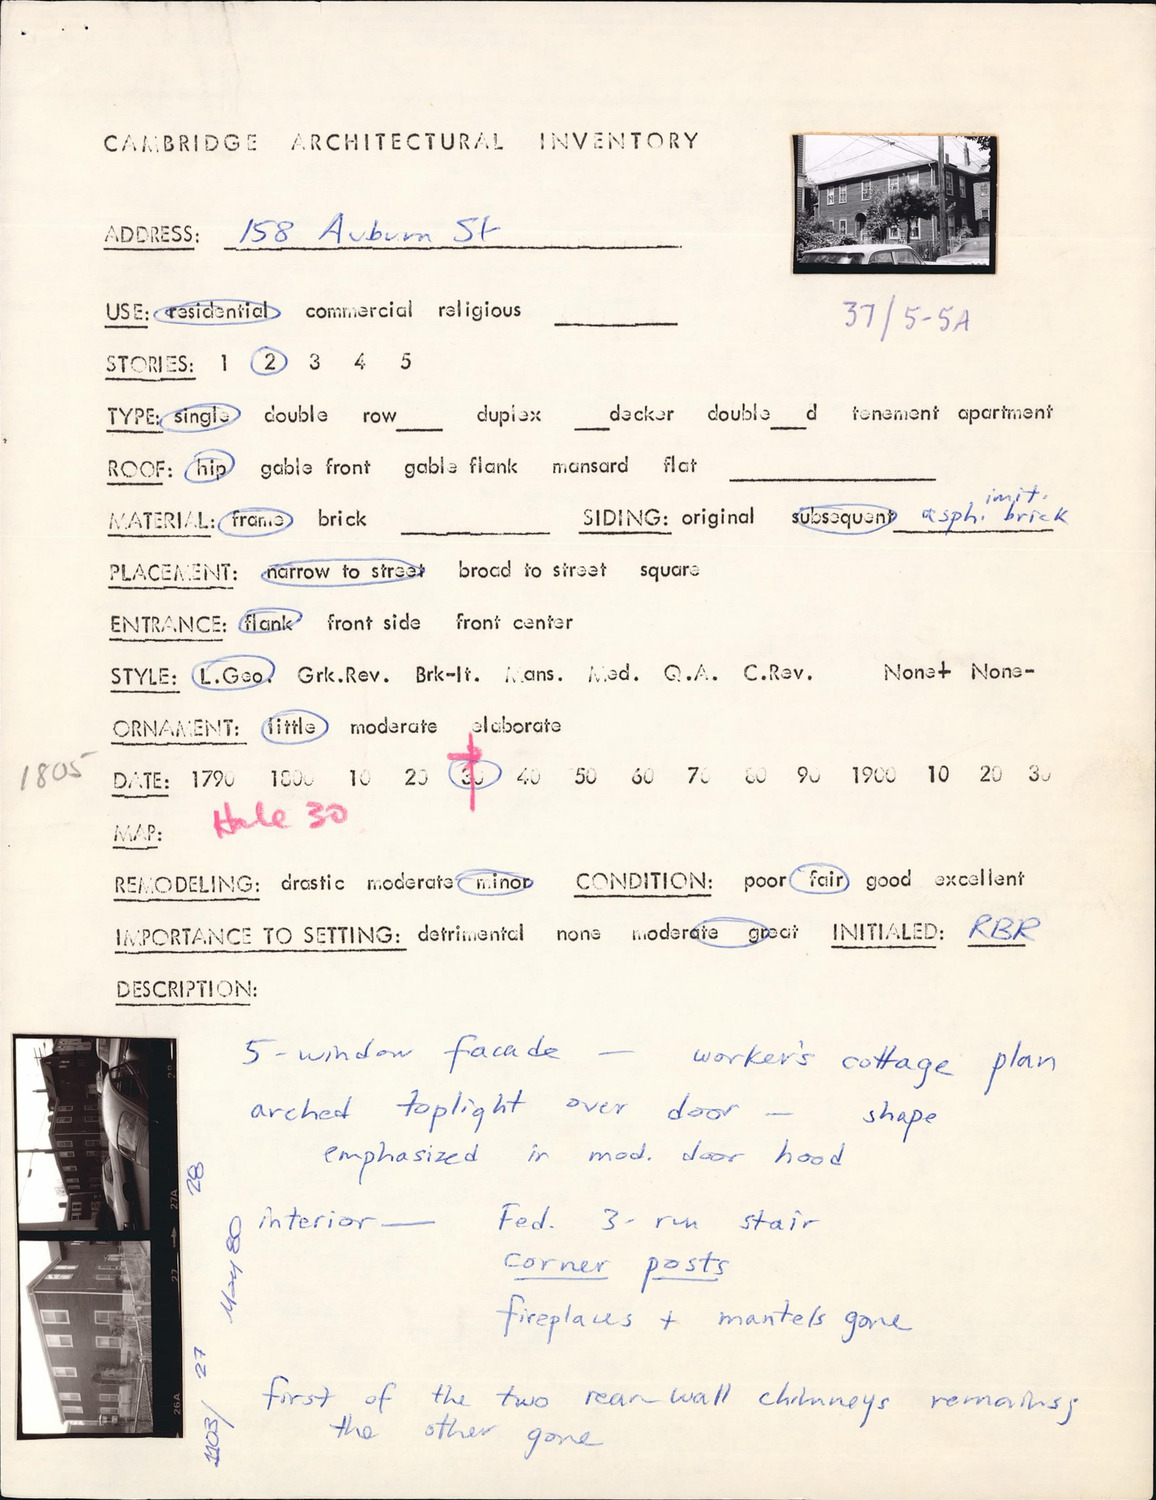 CAMBRIDGE ARCHITECTURAL INVENTORY
ADDRESS: 158 Auburn St
37/5-5A
USE: residential commercial religious
STORIES: 1 2 3 4 5
TYPE: single double row____ duplex ___decker double___d tenement apartment
ROOF: hip gable front gable flank mansard flat
imit.
MATERIAL: frame brick SIDING: original subsequent asph. brick
PLACEMENT: narrow to street broad to street square
ENTRANCE: flank front side front center
STYLE: L.Geo. Grk.Rev. Brk-It. Mans. Med. Q.A. C.Rev. None+ None-
ORNAMENT: little moderate elaborate
1805 DATE: 1790 1800 10 20 30 40 50 60 70 80 90 1900 10 20 30
MAP: Hale 30
REMODELING: drastic moderate minor CONDITION: poor fair good excellent
IMPORTANCE TO SETTING: detrimental none moderate great INITIALED: RBR
DESCRIPTION:
5-window facade — worker's cottage plan
arched toplight over door — shape
emphasized in mod. door hood
interior — Fed. 3-run stair
corner posts
fireplaces + mantels gone
first of the two rear-wall chimneys remains;
the other gone
1103/ 27 May 80 28
26A 27 27A